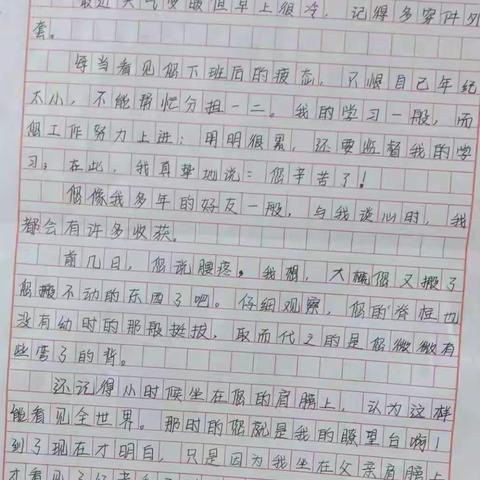 最近天气变暖但早上很冷，记得多穿件外
套。
每当看见您下班后的疲态，只恨自己年纪
太小，不能帮忙分担一二。我的学习一般，而
您工作努力上进；明明很累，还要监督我的学
习；在此，我真挚地说：您辛苦了！
您像我多年的好友一般，与我谈心时，我
都会有许多收获。
前几日，您说腰疼，我想，大概您又搬了
您搬不动的东西了吧。仔细观察，您的脊柱也
没有幼时的那般挺拔，取而代之的是您微微有
些弯了的背。
还记得小时候坐在您的肩膀上，认为这样
能看见全世界。那时的您就是我的瞭望台啊！
到了现在才明白，只是因为我坐在父亲肩膀上
才看见了